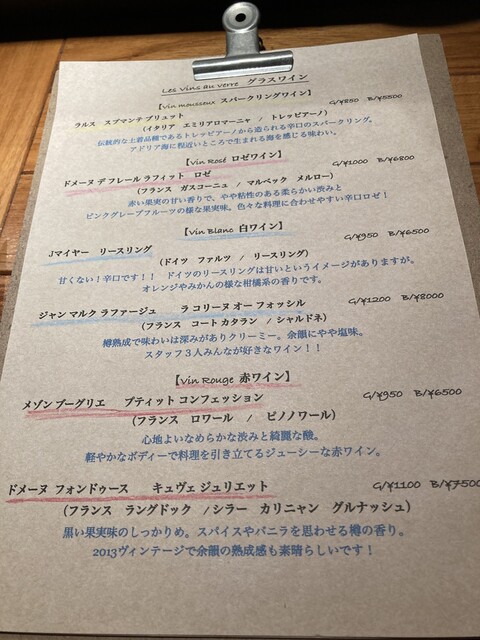 Les vins au verre グラスワイン
【Vin mousseux スパークリングワイン】
ラルス スプマンテ ブリュット G/¥850 B/¥5500
(イタリア エミリアロマーニャ / トレッビアーノ)
伝統的な土着品種であるトレッビアーノから造られる辛口のスパークリング。
アドリア海に程近いところで生まれる海を感じる味わい。
【Vin Rosé ロゼワイン】
ドメーヌ デ フレール ラフィット ロゼ G/¥1000 B/¥6800
(フランス ガスコーニュ / マルベック メルロー)
赤い果実の甘い香りで、やや粘性のある柔らかい渋みと
ピンクグレープフルーツの様な果実味。色々な料理に合わせやすい辛口ロゼ!
【Vin Blanc 白ワイン】
Jマイヤー リースリング G/¥950 B/¥6500
(ドイツ ファルツ / リースリング)
甘くない!辛口です!! ドイツのリースリングは甘いというイメージがありますが。
オレンジやみかんの様な柑橘系の香りです。
ジャン マルク ラファージュ ラ コリーヌ オー フォッシル G/¥1200 B/¥8000
(フランス コート カタラン / シャルドネ)
樽熟成で味わいは深みがありクリーミー。余韻にやや塩味。
スタッフ3人みんなが好きなワイン!!
【Vin Rouge 赤ワイン】
メゾン ブーグリエ プティット コンフェッション G/¥950 B/¥6500
(フランス ロワール / ピノノワール)
心地よいなめらかな渋みと綺麗な酸。
軽やかなボディーで料理を引き立てるジューシーな赤ワイン。
ドメーヌ フォンドゥース キュヴェ ジュリエット G/¥1100 B/¥7500
(フランス ラングドック / シラー カリニャン グルナッシュ)
黒い果実味のしっかりめ。スパイスやバニラを思わせる樽の香り。
2013ヴィンテージで余韻の熟成感も素晴らしいです!